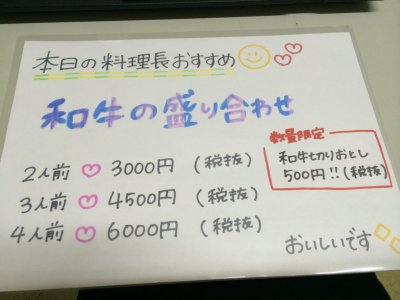 本日の料理長おすすめ
和牛の盛り合わせ
2人前 3000円 (税抜)
3人前 4500円 (税抜)
4人前 6000円 (税抜)
数量限定
和牛切りおとし
500円!!(税抜)
おいしいです